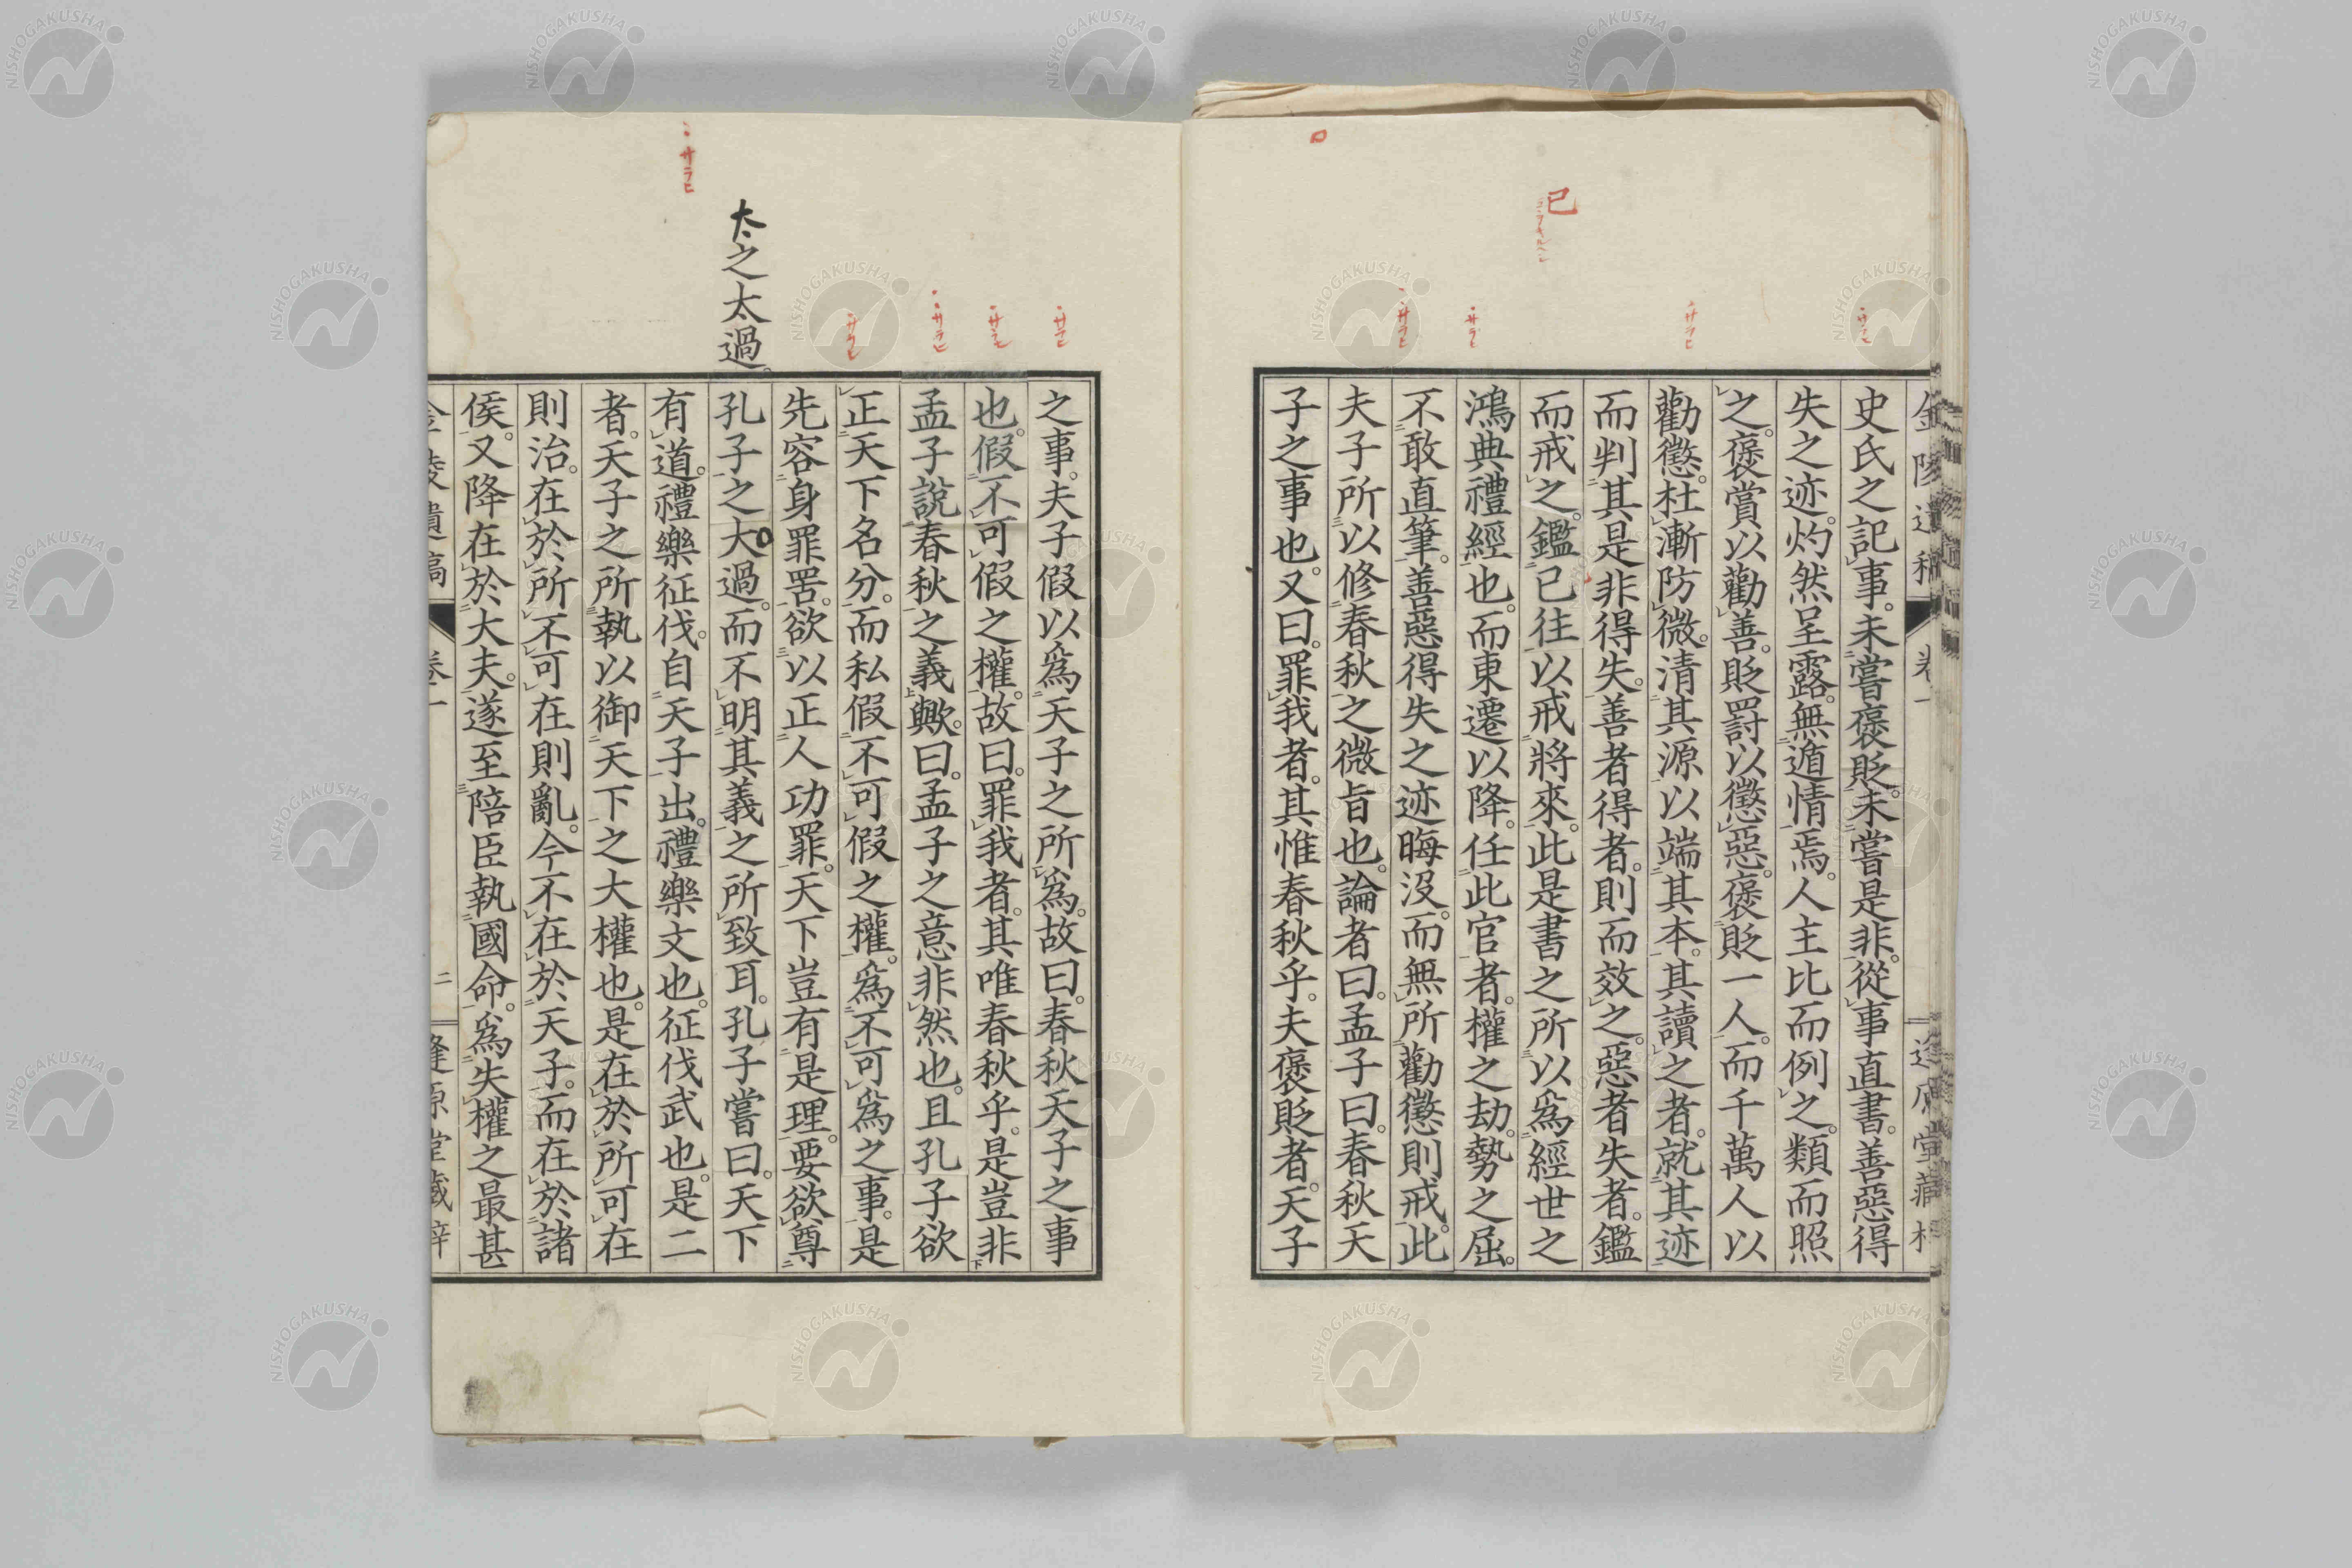 史氏之記事。未嘗褒貶。未嘗是非。從事直書。善惡得
失之迹。灼然呈露。無遁情焉。人主比而例之。類而照
之。褒賞以勸善。貶罰以懲惡。褒貶一人。而千萬人以
勸懲。杜漸防微。清其源以端其本。其讀之者。就其迹
而判其是非得失。善者得者。則而效之。惡者失者。鑑
而戒之。鑑已往以戒將來。此是書之所以爲經世之
鴻典禮經也。而東遷以降。任此官者。權之劫。勢之屈。
不敢直筆。善惡得失之迹晦沒。而無所勸懲則戒。此
夫子所以修春秋之微旨也。論者曰。孟子曰。春秋天
子之事也。又曰。罪我者。其惟春秋乎。夫褒貶者。天子
已
之事。夫子假以爲天子之所爲。故曰。春秋天子之事
也。假不可假之權。故曰。罪我者。其唯春秋乎。是豈非
孟子說春秋之義歟。曰。孟子之意非然也。且孔子欲
正天下名分。而私假不可假之權。爲不可爲之事。是
先容身罪罟。欲以正人功罪。天下豈有是理。要欲尊
孔子之大過。而不明其義之所致耳。孔子嘗曰。天下
有道。禮樂征伐。自天子出。禮樂文也。征伐武也。是二
者。天子之所執以御天下之大權也。是在於所可在
則治。在於所不可在則亂。今不在於天子。而在於諸
侯。又降在於大夫。遂至陪臣執國命。爲失權之最甚
之太過。
サラヒ
サラヒ
サラヒ
サラヒ
サラヒ
サラヒ
サラヒ
サラヒ
卷一
二
NISHOGAKUSHA